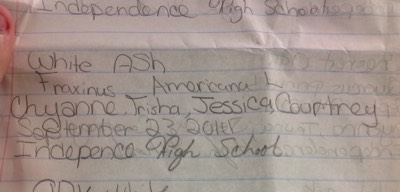 Independence High School
White Ash
Fraxinus Americana L
Chyanne, Trisha, Jessica, Courtney
September 23, 2014
Indepence High School
White